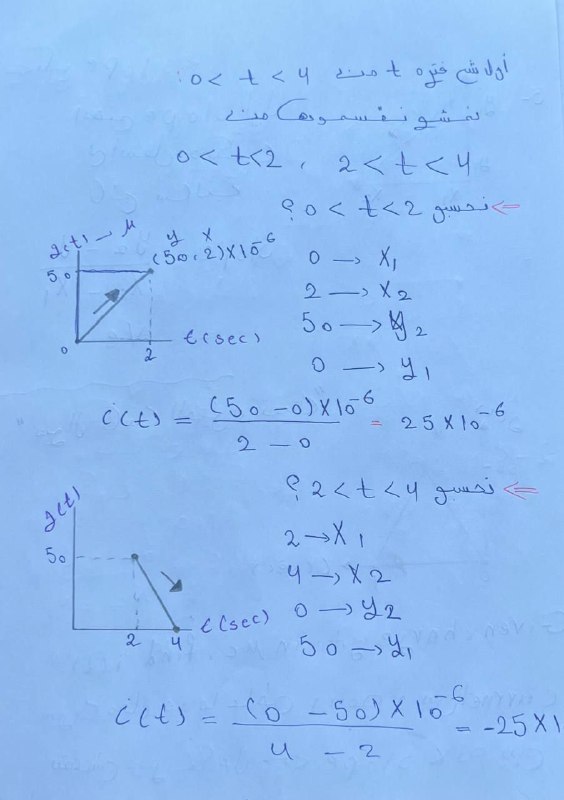 أول شي فتره t من 0 < t < 4 :
نمشو نقسموها من
0 < t < 2 , 2 < t < 4
نحسبو 0 < t < 2 ؟
q(t) → μ
y x
(50, 2) × 10⁻⁶
50
0
2
t(sec)
0 → x₁
2 → x₂
50 → y₂
0 → y₁
i(t) = (50 - 0) × 10⁻⁶ / 2 - 0 = 25 × 10⁻⁶
نحسبو 2 < t < 4 ؟
q(t)
50
2 4
t(sec)
2 → x₁
4 → x₂
0 → y₂
50 → y₁
i(t) = (0 - 50) × 10⁻⁶ / 4 - 2 = -25 × 1